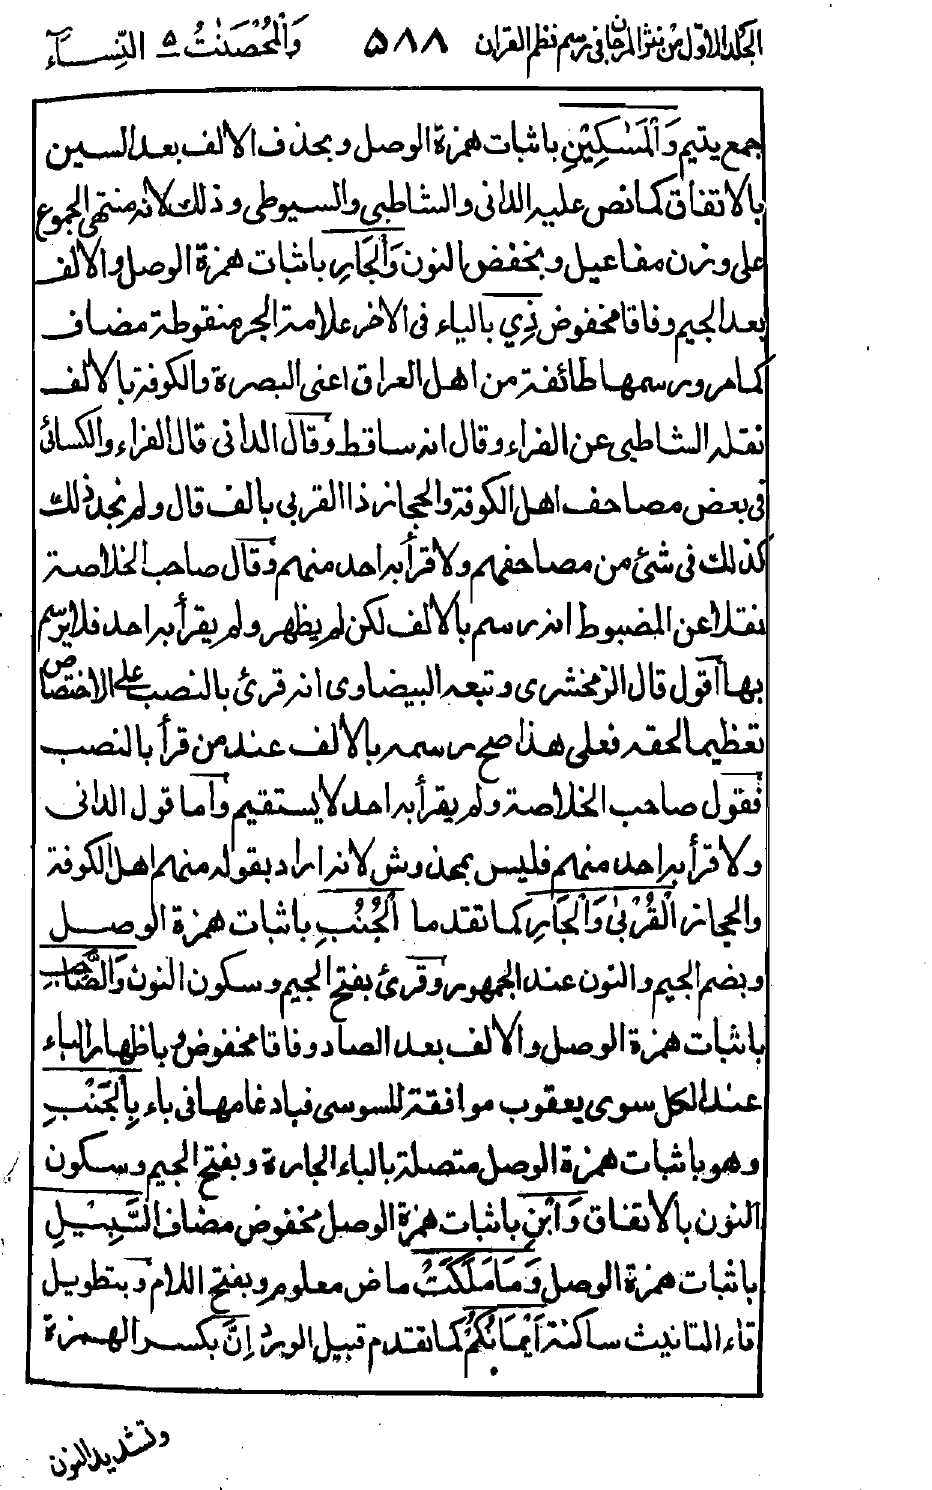 الجلد الاول من نثر المرجان فى رسم نظم القران ٥٨٨ وَالْمُحْصَنٰتُ ٥ النِّسَاۤء
جمع يتيم وَالْمَسٰكِيْنِ باثبات همزة الوصل وبحذف الالف بعد السين
بالاتفاق كما نص عليه الدانى والشاطبى والسيوطى وذلك لانه منتهى الجموع
على وزن مفاعيل وبخفض النون وَالْجَارِ باثبات همزة الوصل والالف
بعد الجيم وفاقا مخفوض ذِي بالياء فى الاخر علامة الجر منقوطة مضاف
كما مر ورسمها طائفة من اهل العراق اعنى البصرة والكوفة بالالف
نقله الشاطبى عن الفراء وقال انه ساقط وقال الدانى قال الفراء والكسائ
فى بعض مصاحف اهل الكوفة والحجاز ذا القربى بالف قال ولم نجد ذلك
كذلك فى شئ من مصاحفهم ولا قرأ به احد منهم وقال صاحب الخلاصة
نقلا عن المضبوط انه رسم بالالف لكن لم يظهر ولم يقرأ به احد فلا يرسم
بها اقول قال الزمخشرى وتبعه البيضاوى انه قرئ بالنصب على الاختصاص
تعظيما لحقه فعلى هذا صح رسمه بالالف عند من قرأ بالنصب
فقول صاحب الخلاصة ولم يقرأ به احد لا يستقيم واما قول الدانى
ولا قرأ به احد منهم فليس بمخدوش لانه اراد بقوله منهم اهل الكوفة
والحجاز الْقُرْبٰى وَالْجَارِ كما تقدما الْجُنُبِ باثبات همزة الوصل
وبضم الجيم والنون عند الجمهور وقرئ بفتح الجيم وسكون النون وَالصَّاحِبِ
باثبات همزة الوصل والالف بعد الصاد وفاقا مخفوض وباظهار الباء
عند الكل سوى يعقوب موافقة للسوسى فبادغامها فى باء بِالْجَنْبِ
وهو باثبات همزة الوصل متصلة بالباء الجارة وبفتح الجيم وسكون
النون بالاتفاق وَابْنِ باثبات همزة الوصل مخفوض مضاف السَّبِيْلِ
باثبات همزة الوصل وَمَا مَلَكَتْ ماض معلوم وبفتح اللام وبتطويل
تاء التانيث ساكنة اَيْمَانُكُمْ كما تقدم قبيل الورد اِنَّ بكسر الهمزة
وتشديد النون